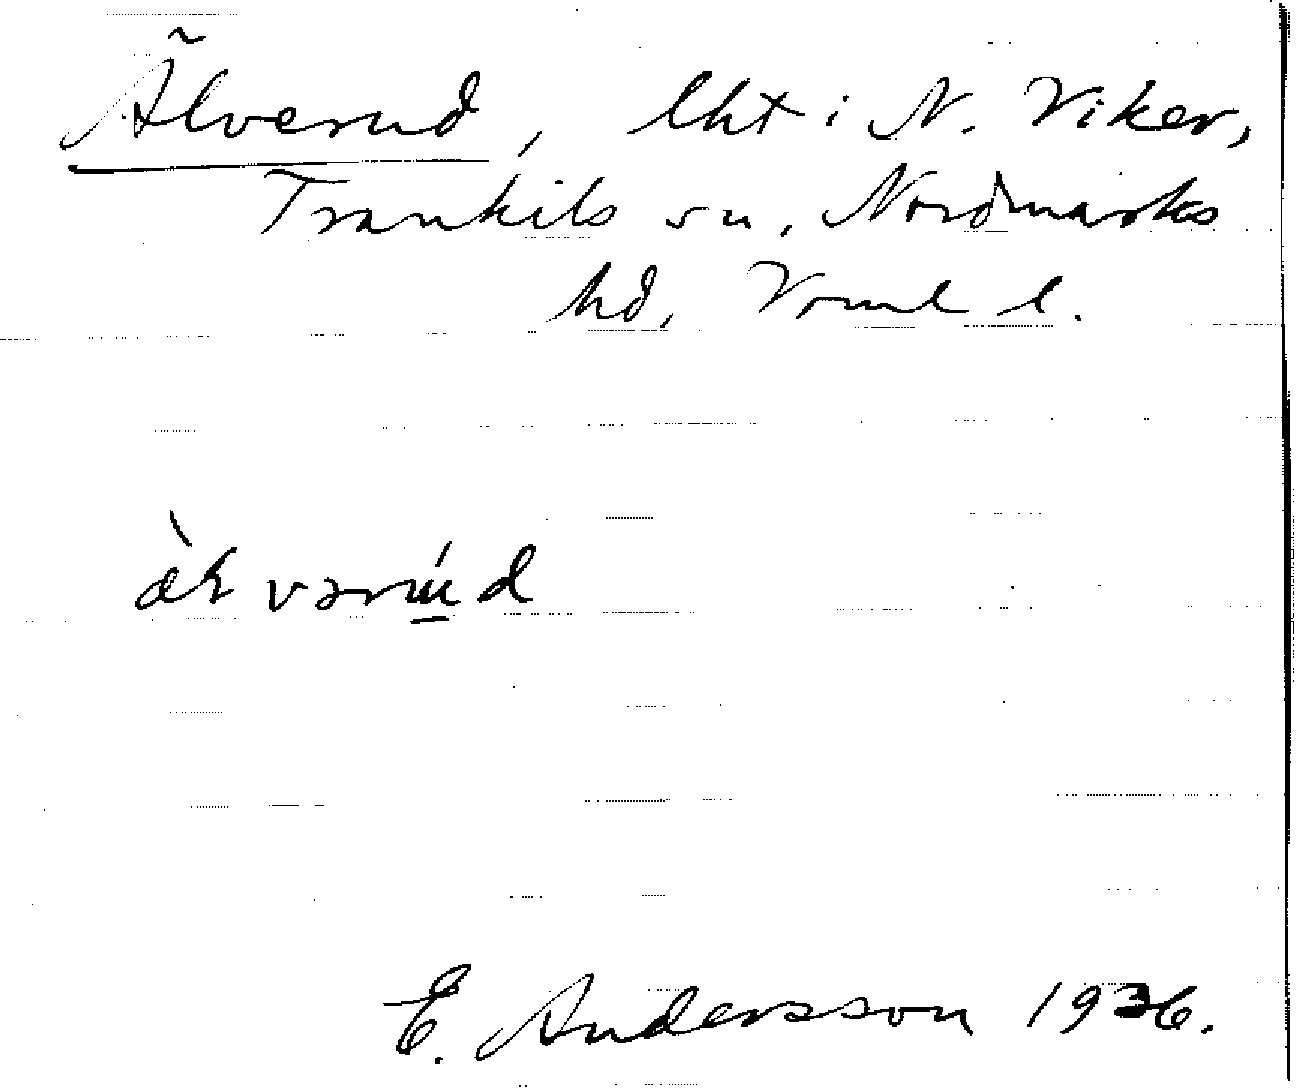 Älverud, lht i N. Viker,
Trankils sn, Nordmarks
hd, Vrml l.
E. Andersson 1936.